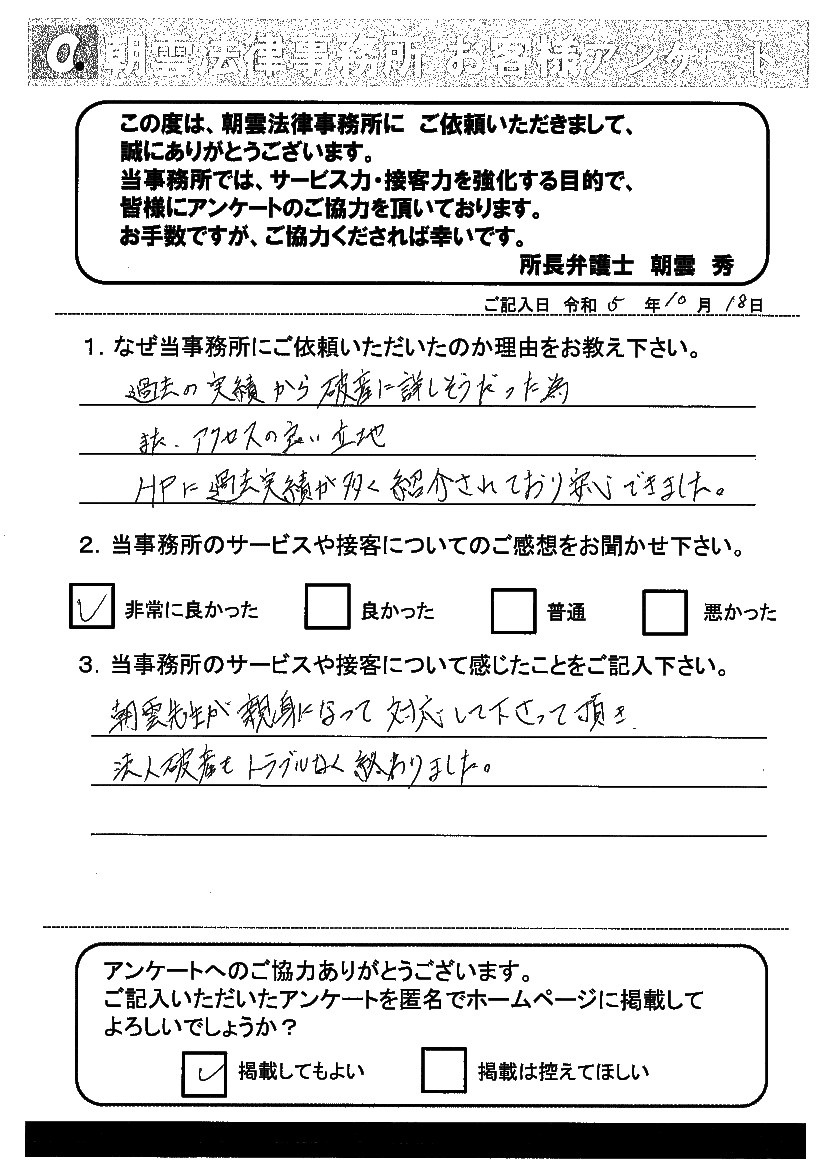 a.朝雲法律事務所 お客様アンケート
この度は、朝雲法律事務所に ご依頼いただきまして、
誠にありがとうございます。
当事務所では、サービス力・接客力を強化する目的で、
皆様にアンケートのご協力を頂いております。
お手数ですが、ご協力くだされば幸いです。
所長弁護士 朝雲 秀
ご記入日 令和 5 年 10 月 18 日
1. なぜ当事務所にご依頼いただいたのか理由をお教え下さい。
過去の実績から破産に詳しそうだった為
また、アクセスの良い立地
HPに過去実績が多く紹介されており安心できました。
2. 当事務所のサービスや接客についてのご感想をお聞かせ下さい。
非常に良かった 良かった 普通 悪かった
3. 当事務所のサービスや接客について感じたことをご記入下さい。
朝雲先生が親身になって対応して下さって頂き
法人破産もトラブルなく終わりました。
アンケートへのご協力ありがとうございます。
ご記入いただいたアンケートを匿名でホームページに掲載して
よろしいでしょうか？
掲載してもよい 掲載は控えてほしい